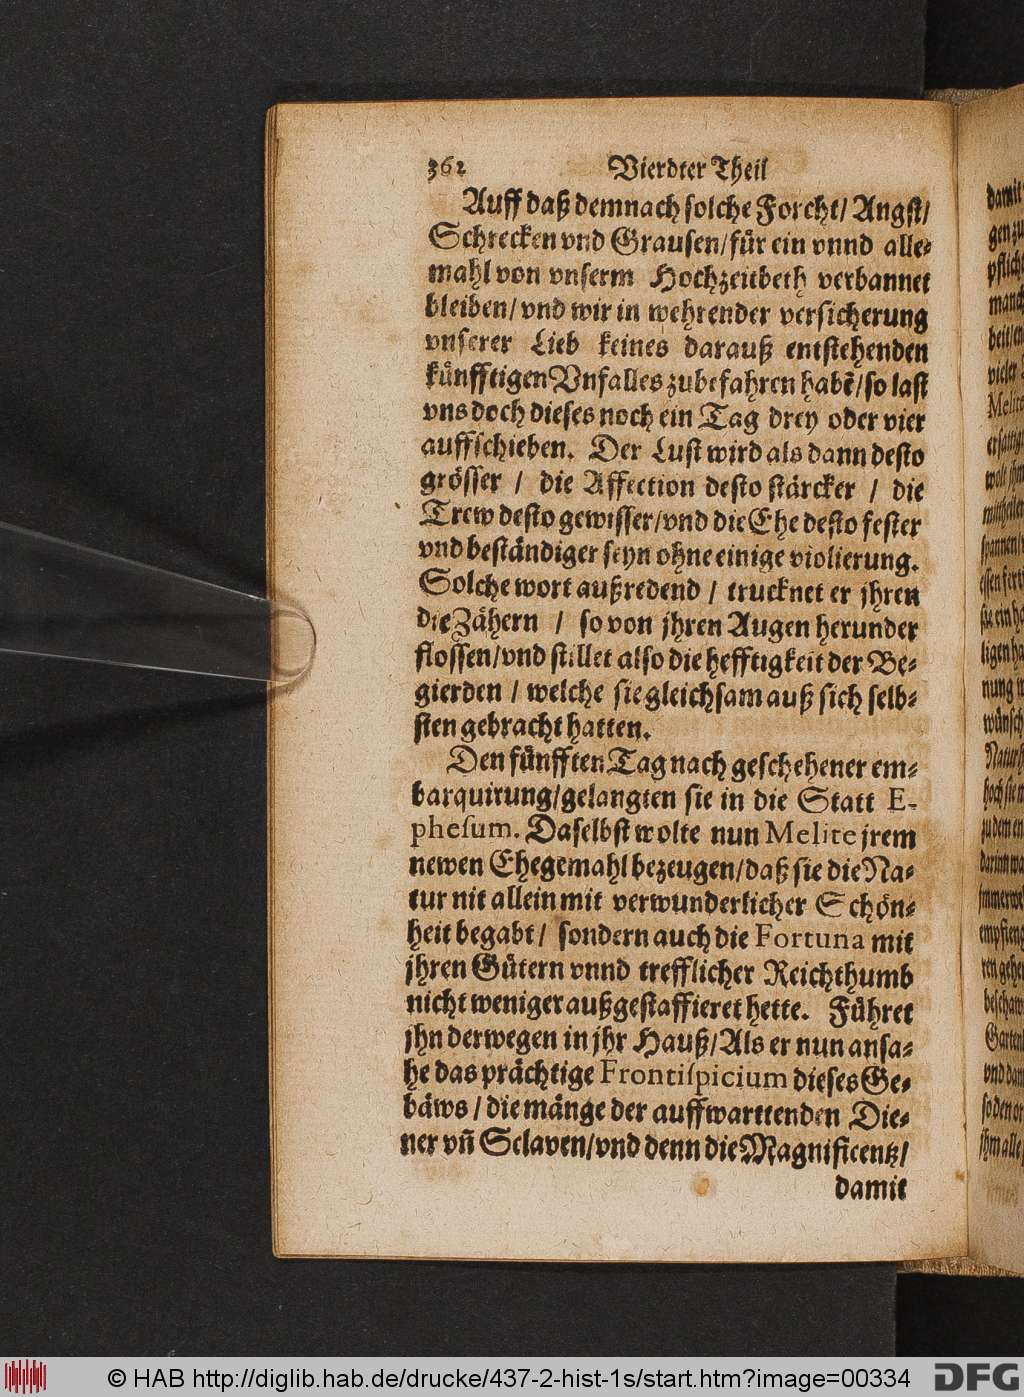 362 Vierdter Theil
Auff daß demnach solche Forcht/ Angst/
Schrecken vnd Grausen/für ein vnnd alle-
mahl von vnserm Hochzeitbeth verbannet
bleiben/ vnd wir in wehrender versicherung
vnserer Lieb keines darauß entstehenden
künfftigen Vnfalles zubefahren habē/so last
vns doch dieses noch ein Tag drey oder vier
auffschieben. Der Lust wird als dann desto
grösser / die Affection desto stärcker / die
Trew desto gewisser/vnd die Ehe desto fester
vnd beständiger seyn ohne einige violierung.
Solche wort außredend / trucknet er jhren
die Zähern / so von jhren Augen herunder
flossen/vnd stillet also die hefftigkeit der Be-
gierden / welche sie gleichsam auß sich selb-
sten gebracht hatten.
Den fünfften Tag nach geschehener em-
barquirung/gelangten sie in die Statt E-
phesum. Daselbst wolte nun Melite jrem
newen Ehegemahl bezeugen/daß sie die Na-
tur nit allein mit verwunderlicher Schön-
heit begabt/ sondern auch die Fortuna mit
jhren Gütern vnnd trefflicher Reichthumb
nicht weniger außgestaffieret hette. Führet
jhn derwegen in jhr Hauß/Als er nun ansa-
he das prächtige Frontispicium dieses Ge-
bäws / die mänge der auffwarttenden Die-
ner vñ Sclaven/vnd denn die Magnificentz/
damit
© HAB http://diglib.hab.de/drucke/437-2-hist-1s/start.htm?image=00334
DFG